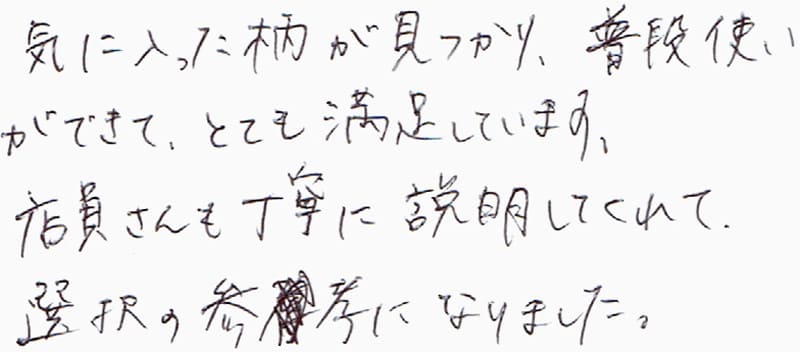 気に入った柄が見つかり、普段使い
ができて、とても満足しています。
店員さんも丁寧に説明してくれて、
選択の参考になりました。